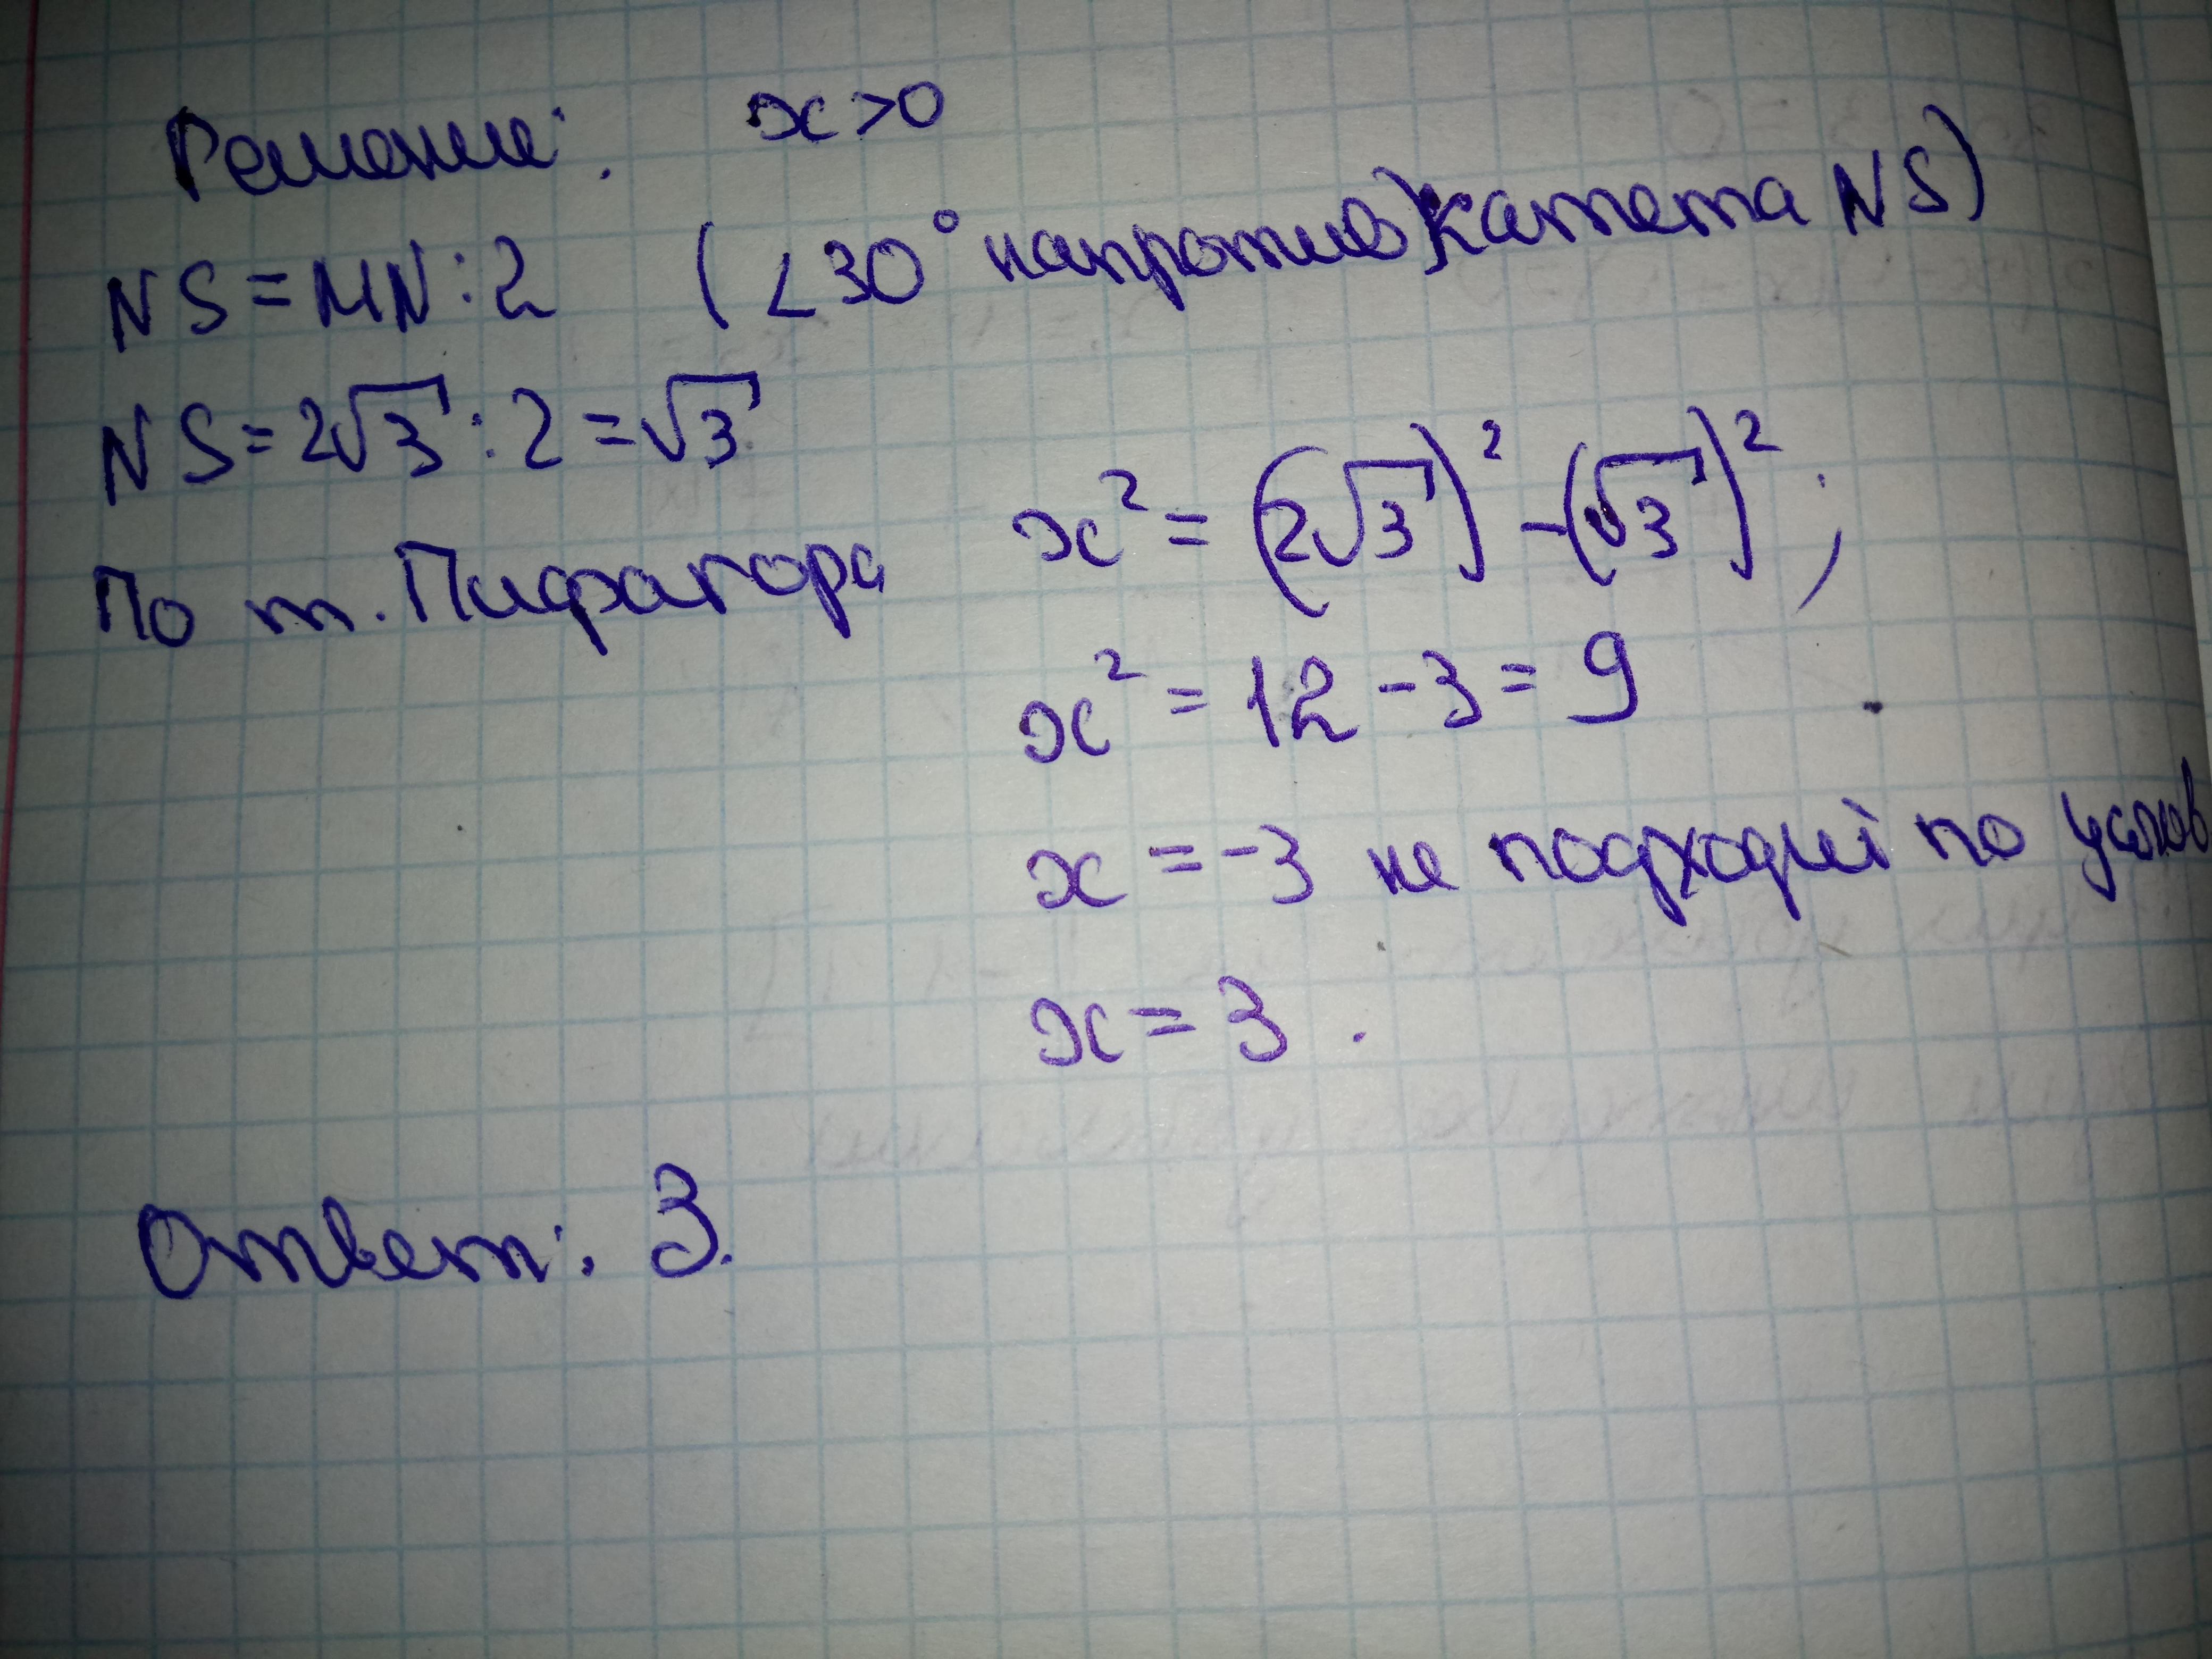 Решение: x>0
NS=MN:2 (∠30° напротив катета NS)
NS=2√3:2=√3
По т. Пифагора x²=(2√3)²-(√3)²;
x²=12-3=9
x=-3 не подходит по услов
x=3.
Ответ: 3.